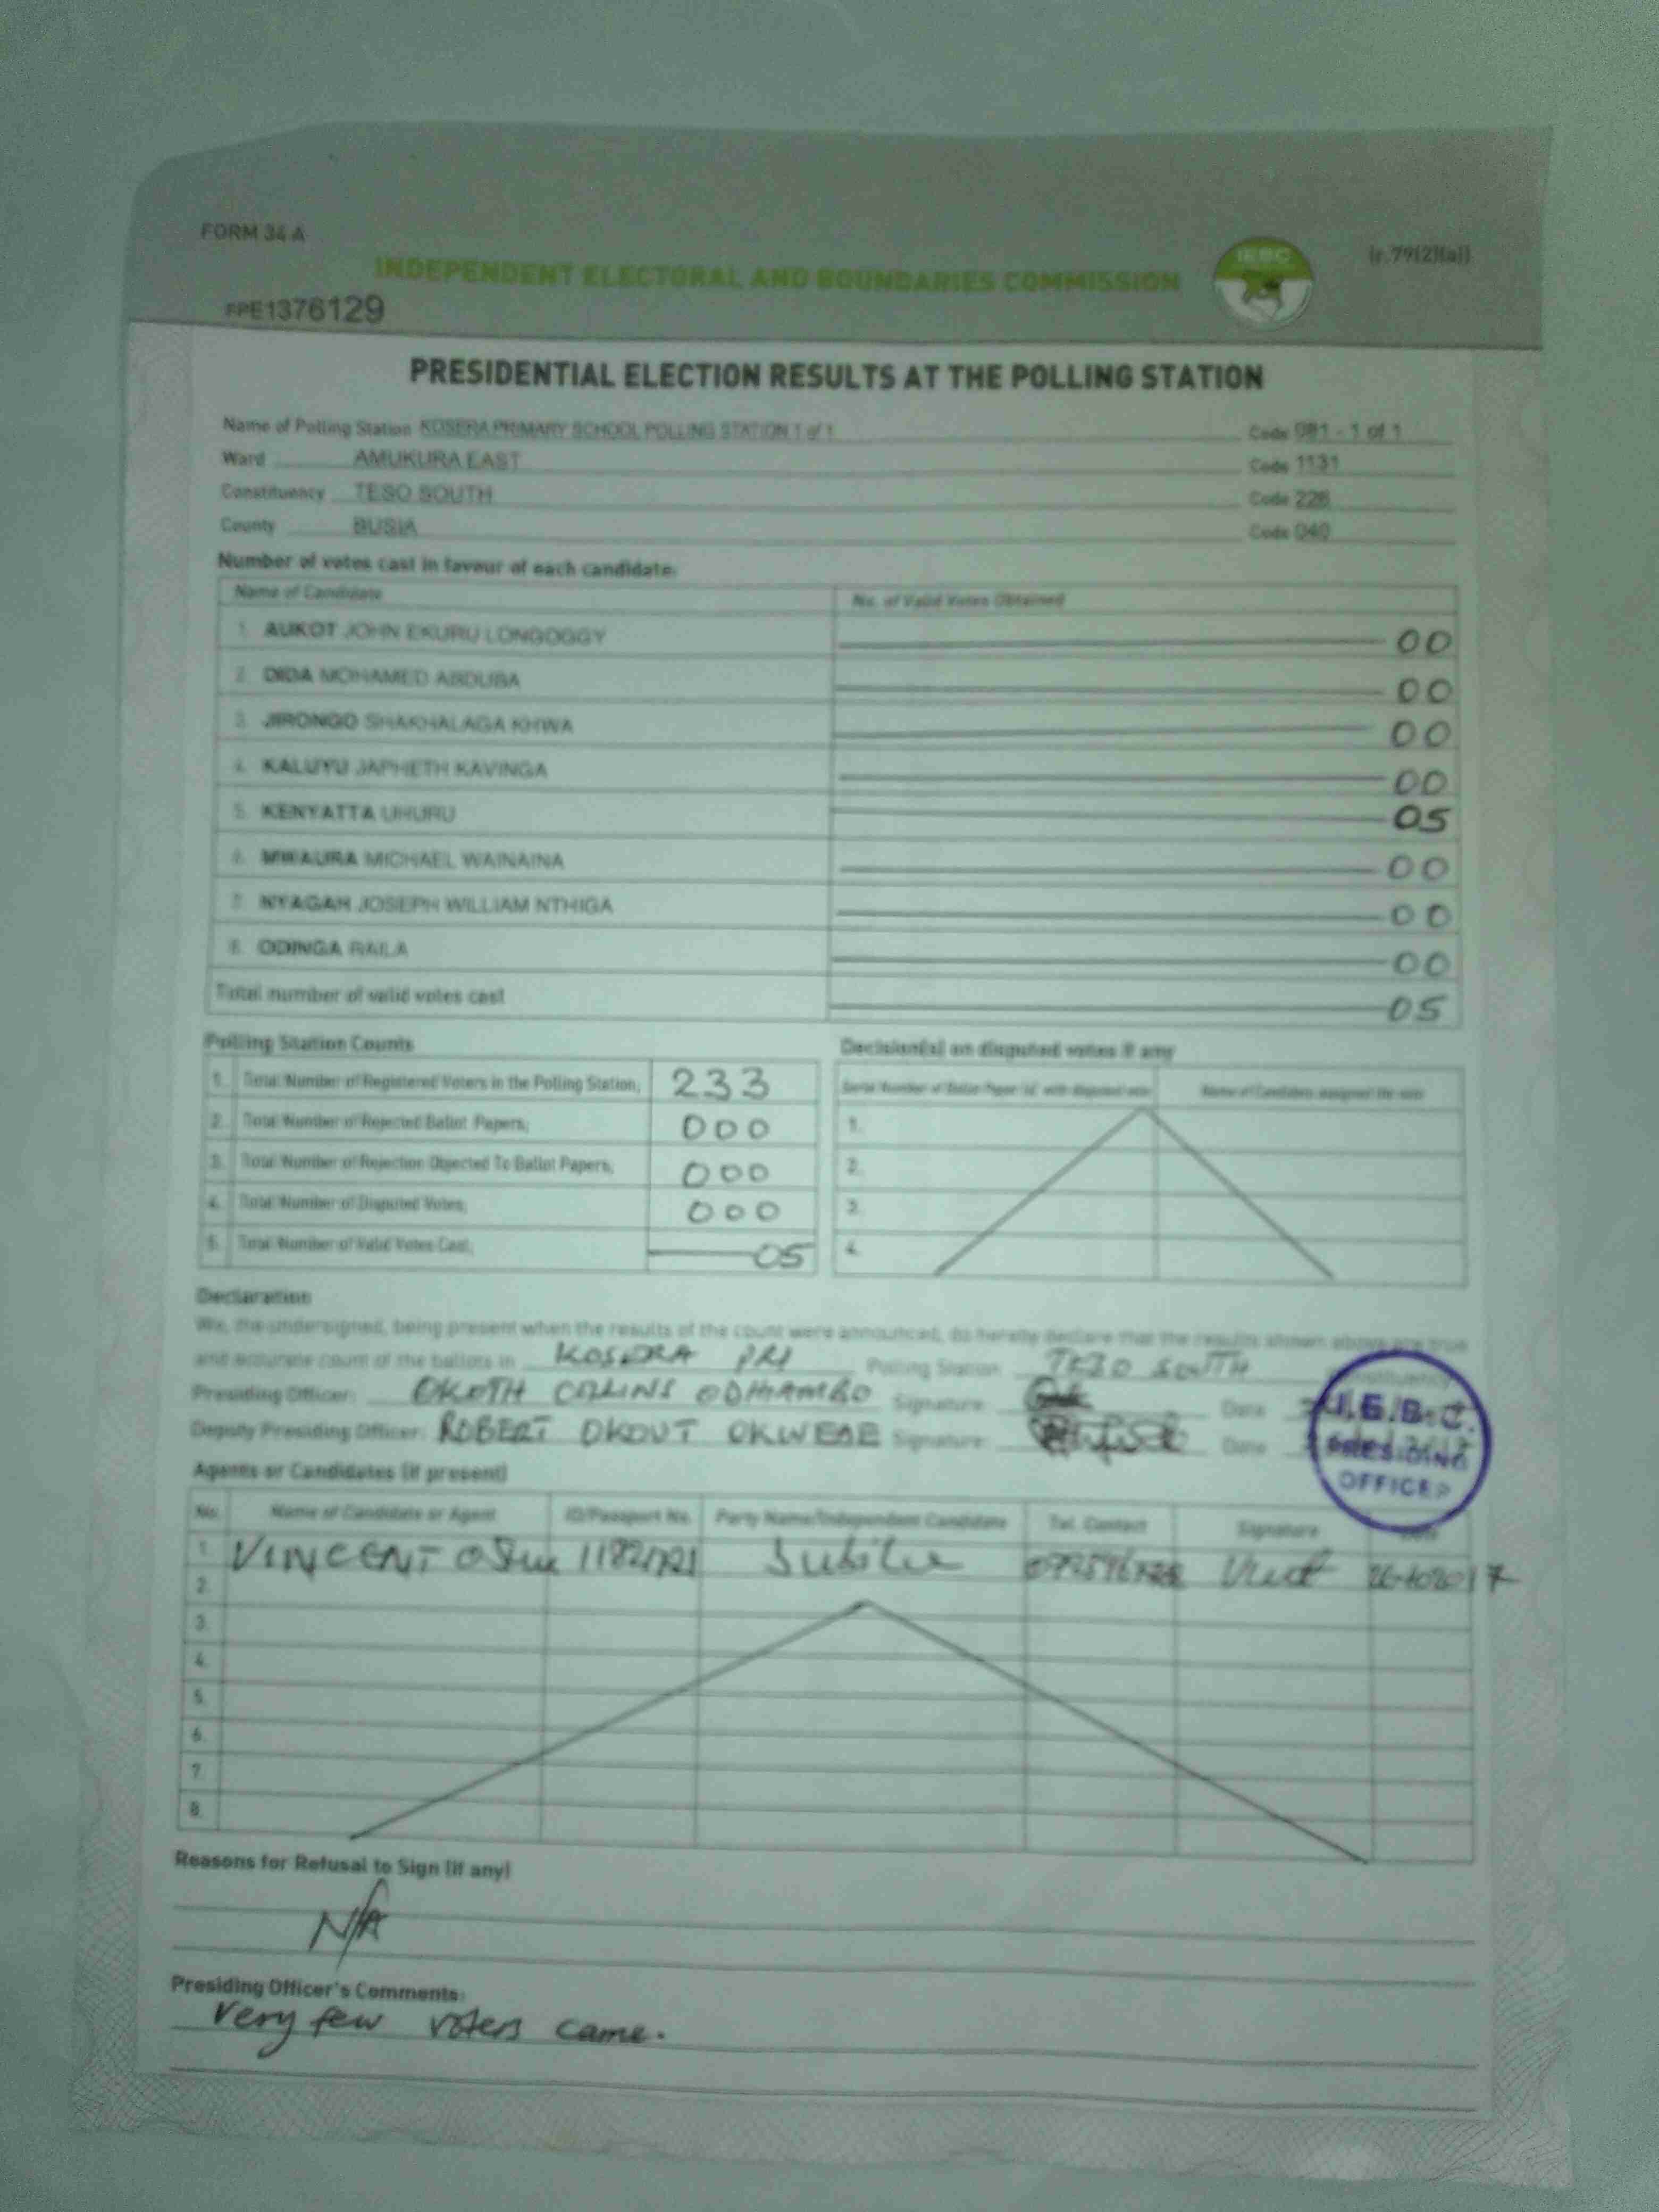 FORM 34 A
(r.79(2)(a))
INDEPENDENT ELECTORAL AND BOUNDARIES COMMISSION
IEBC
FPE1376129
PRESIDENTIAL ELECTION RESULTS AT THE POLLING STATION
Name of Polling Station KOSERA PRIMARY SCHOOL POLLING STATION 1 of 1 Code 081 - 1 of 1
Ward AMUKURA EAST Code 1131
Constituency TESO SOUTH Code 226
County BUSIA Code 040
Number of votes cast in favour of each candidate:
Name of Candidate No. of Valid Votes Obtained
1. AUKOT JOHN EKURU LONGOGGY 00
2. DIDA MOHAMED ABDUBA 00
3. JIRONGO SHAKHALAGA KHWA 00
4. KALUYU JAPHETH KAVINGA 00
5. KENYATTA UHURU 05
6. MWAURA MICHAEL WAINAINA 00
7. NYAGAH JOSEPH WILLIAM NTHIGA 00
8. ODINGA RAILA 00
Total number of valid votes cast 05
Polling Station Counts
1. Total Number of Registered Voters in the Polling Station; 233
2. Total Number of Rejected Ballot Papers; 000
3. Total Number of Rejection Objected To Ballot Papers; 000
4. Total Number of Disputed Votes; 000
5. Total Number of Valid Votes Cast; 05
Decision(s) on disputed votes if any
Serial Number of Ballot Paper (s) with disputed vote Name of Candidate assigned the vote
1.
2.
3.
4.
Declaration
We, the undersigned, being present when the results of the count were announced, do hereby declare that the results shown above are true
and accurate count of the ballots in KOSERA PRI Polling Station TESO SOUTH Constituency
Presiding Officer: OKOTH COLLINS ODHIAMBO Signature Date
Deputy Presiding Officer: ROBERT OKOUT Signature: Date
I.E.B.C.
PRESIDING
OFFICER
Agents or Candidates (if present)
No. Name of Candidate or Agent ID/Passport No. Party Name/Independent Candidate Tel. Contact Signature
1. VINCENT Jubilee
2.
3.
4.
5.
6.
7.
8.
Reasons for Refusal to Sign (if any)
N/A
Presiding Officer's Comments:
Very few voters came.